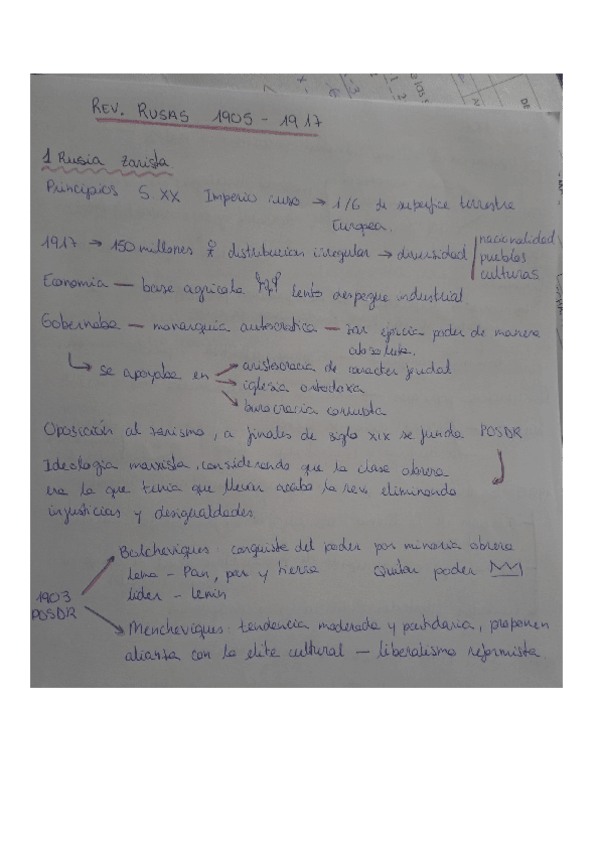 REV. RUSAS 1905 - 1917
1 Rusia zarista
Principios S XX Imperio ruso → 1/6 de superficie terrestre
Europea.
1917 → 150 millones distribucion irregular → diversidad
nacionalidad
pueblos
culturas
Economia — base agricola lento despegue industrial
Gobernaba — monarquia autocratica — zar ejercia poder de manera
absoluta.
se apoyaba en
aristocracia de caracter feudal
iglesia ortodoxa
burocracia corrupta
Oposición al zarismo, a finales de siglo XIX se funda POSDR
Ideologia marxista, considerando que la clase obrera
era la que tenia que llevar acabo la rev. eliminando
injusticias y desigualdades.
1903
POSDR
Bolcheviques: conquista del poder por minoria obrera
lema - Pan, paz y tierra Quitar poder
lider - Lenin
Mencheviques: tendencia moderada y partidaria, proponen
alianza con la elite cultural — liberalismo reformista.